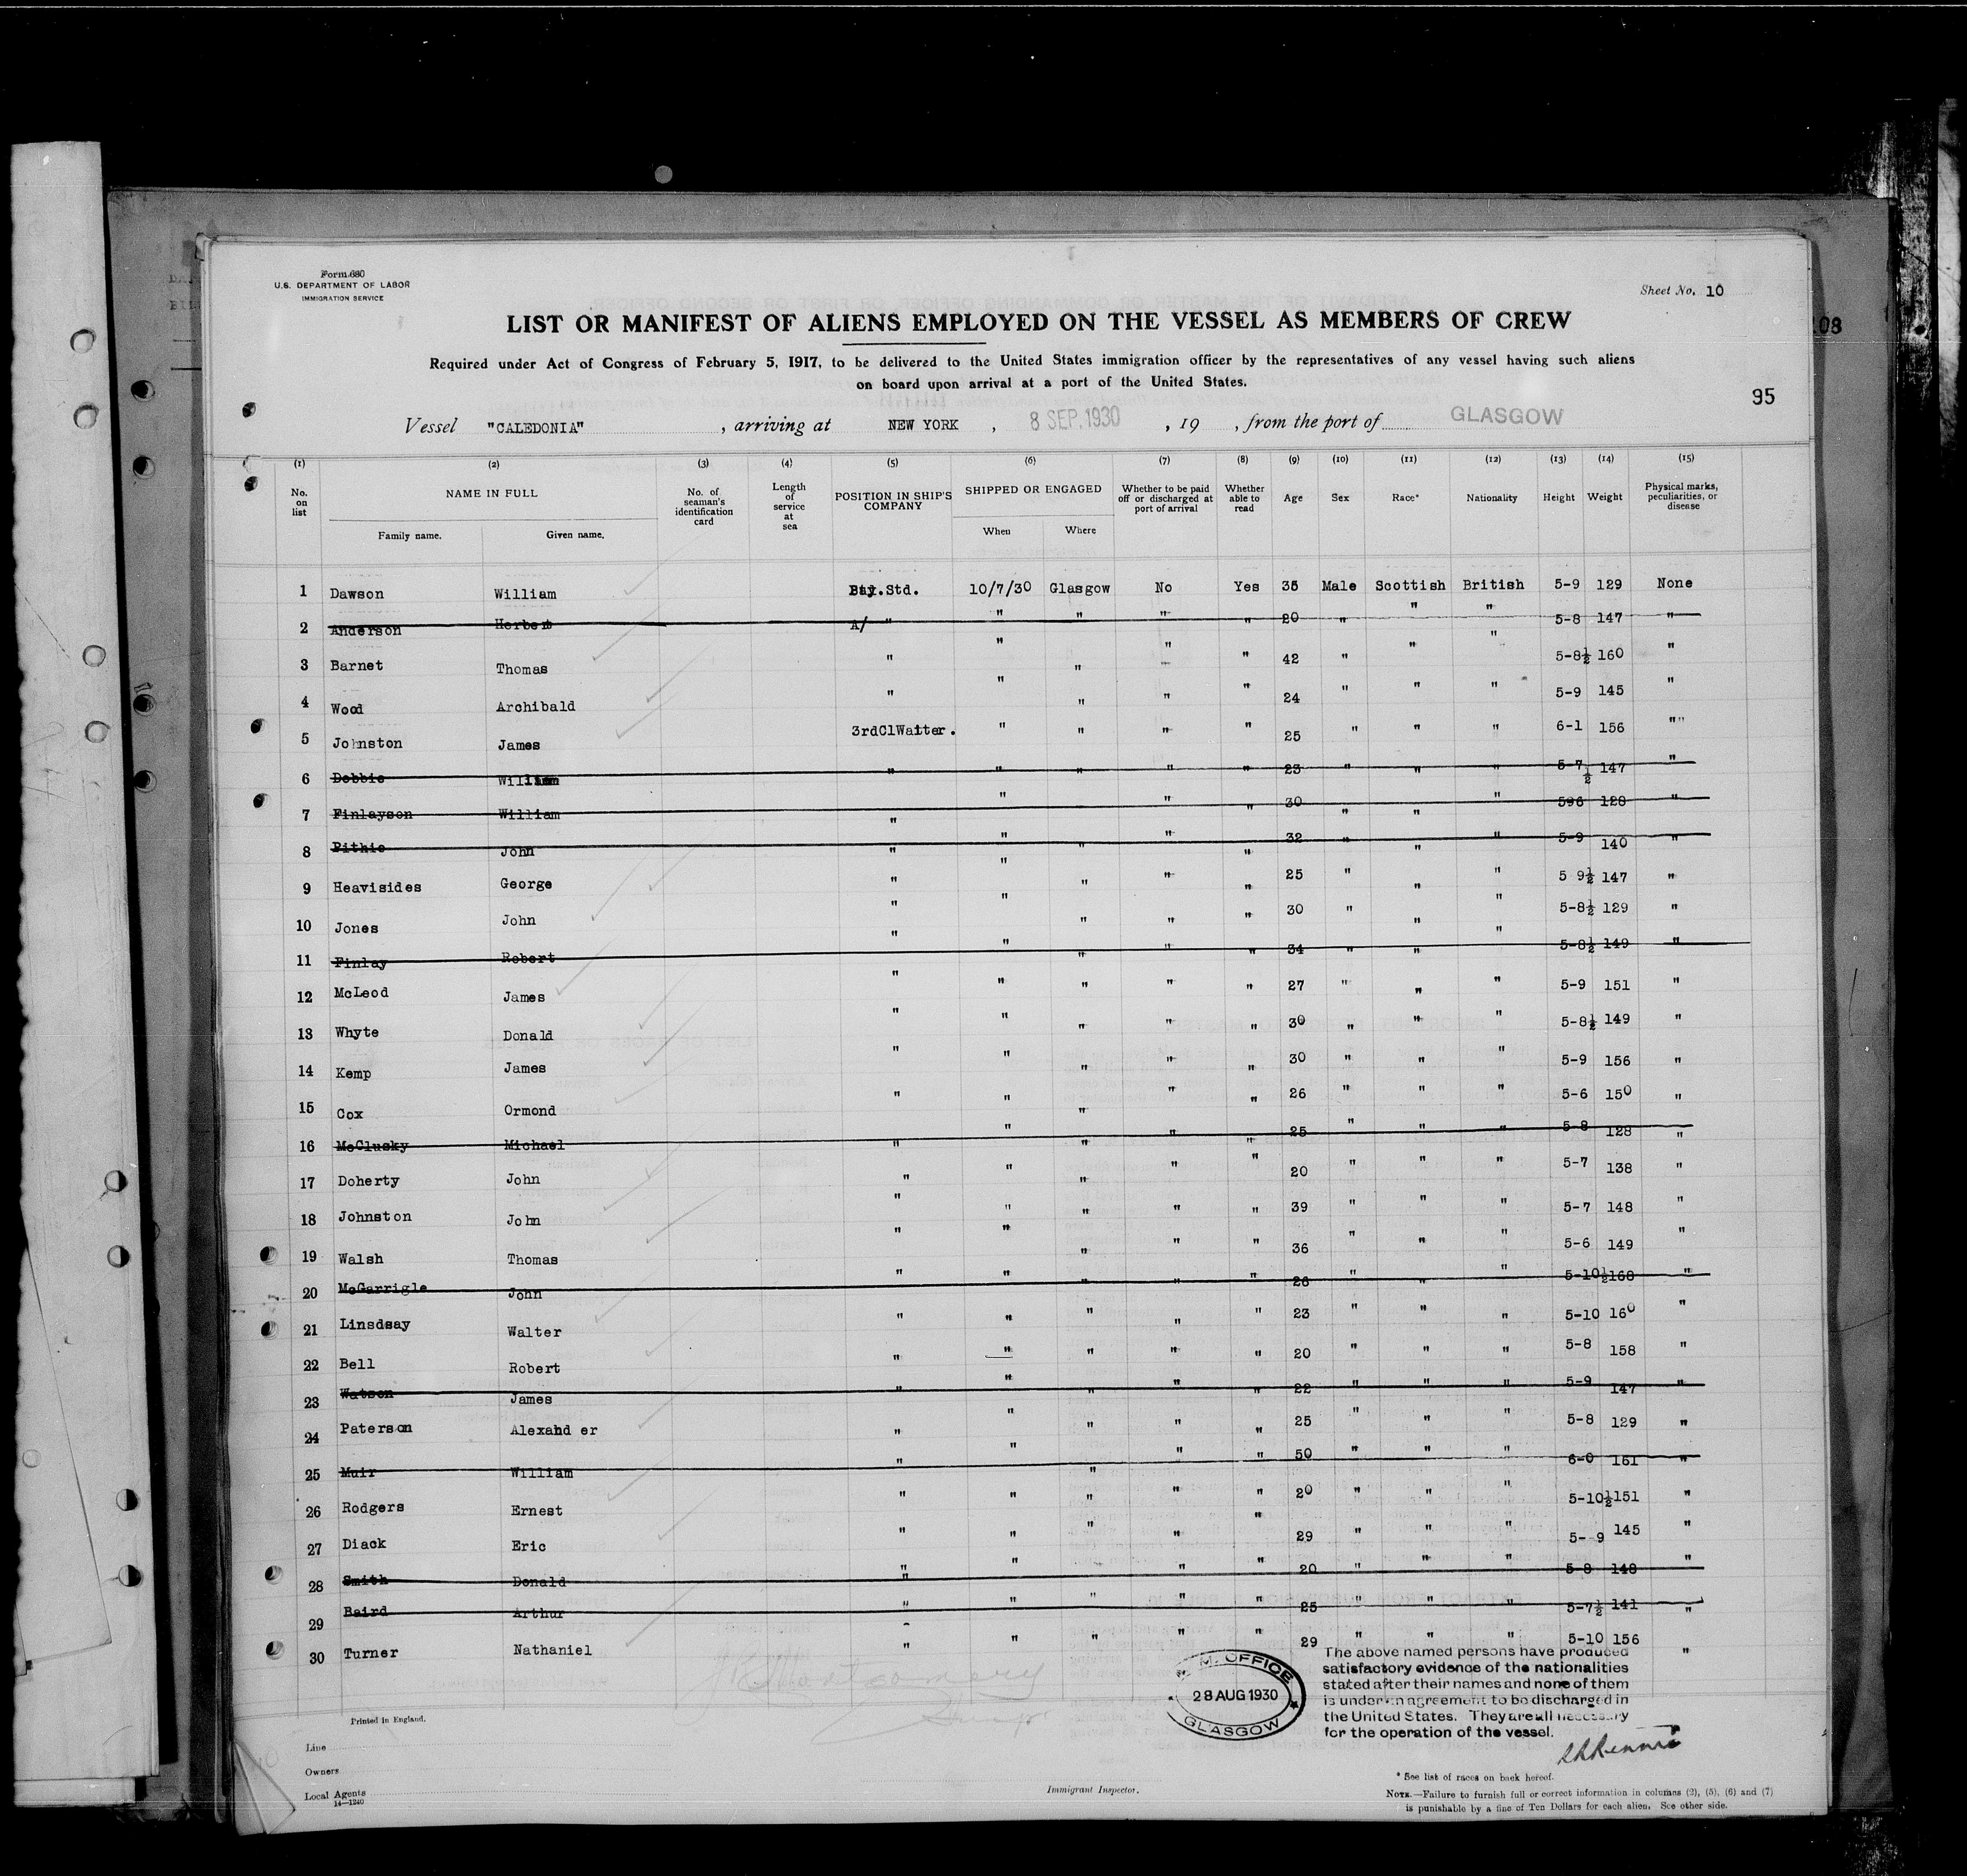 Form 680
U.S. DEPARTMENT OF LABOR
IMMIGRATION SERVICE
Sheet No. 10
LIST OR MANIFEST OF ALIENS EMPLOYED ON THE VESSEL AS MEMBERS OF CREW
Required under Act of Congress of February 5, 1917, to be delivered to the United States immigration officer by the representatives of any vessel having such aliens
on board upon arrival at a port of the United States.
95
Vessel "CALEDONIA" , arriving at NEW YORK , 8 SEP.1930 , 19 , from the port of GLASGOW
(1) (2) (3) (4) (5) (6) (7) (8) (9) (10) (11) (12) (13) (14) (15)
No. on list NAME IN FULL Family name. Given name. No. of seaman's identification card Length of service at sea POSITION IN SHIP'S COMPANY SHIPPED OR ENGAGED When Where Whether to be paid off or discharged at port of arrival Whether able to read Age Sex Race* Nationality Height Weight Physical marks, peculiarities, or disease
1 Dawson William Std. 10/7/30 Glasgow No Yes 35 Male Scottish British 5-9 129 None
2 Anderson Herbert A/ " " " " " 20 " " " 5-8 147 "
3 Barnet Thomas " " " " " 42 " " " 5-8½ 160 "
4 Wood Archibald " " " " " 24 " " " 5-9 145 "
5 Johnston James 3rdClWaiter. " " " " 25 " " " 6-1 156 ""
6 Dobbie William " " " " " 23 " " " 5-7½ 147 "
7 Finlayson William " " " " 30 " " " 5 6 128 "
8 Pithie John " " " " " 32 " " " 5-9 140 "
9 Heavisides George " " " " " 25 " " " 5 9½ 147 "
10 Jones John " " " " " 30 " " " 5-8½ 129 "
11 Finlay Robert " " " " " 34 " " " 5-8½ 149 "
12 McLeod James " " " " " 27 " " " 5-9 151 "
13 Whyte Donald " " " " " 30 " " " 5-8½ 149 "
14 Kemp James " " " " " 30 " " " 5-9 156 "
15 Cox Ormond " " " " " 26 " " " 5-6 150 "
16 McClusky Michael " " " " " 25 " " " 5-8 128 "
17 Doherty John " " " " " 20 " " " 5-7 138 "
18 Johnston John " " " " " 39 " " " 5-7 148 "
19 Walsh Thomas " " " " " 36 " " " 5-6 149 "
20 McGarrigle John " " " " " 26 " " " 5-10½ 168 "
21 Linsdsay Walter " " " " " 23 " " " 5-10 160 "
22 Bell Robert " " " " " 20 " " " 5-8 158 "
23 Watson James " " " " " 22 " " " 5-9 147 "
24 Paterson Alexahd er " " " " " 25 " " " 5-8 129 "
25 Muir William " " " " " 50 " " " 6-0 161 "
26 Rodgers Ernest " " " " " 20 " " " 5-10½ 151 "
27 Diack Eric " " " " " 29 " " " 5- 9 145 "
28 Smith Donald " " " " 20 " " " 5-8 148 "
29 Baird Arthur " " " " " 25 " " " 5-7½ 141 "
30 Turner Nathaniel " " " " " 29 " " " 5-10 156 "
M. OFFICE
28 AUG 1930
GLASGOW
The above named persons have produced
satisfactory evidence of the nationalities
stated after their names and none of them
is under an agreement to be discharged in
the United States. They are all necessary
for the operation of the vessel.
Printed in England.
Line
Owners
Local Agents
14—1240
Immigrant Inspector.
* See list of races on back hereof.
NOTE.—Failure to furnish full or correct information in columns (2), (5), (6) and (7)
is punishable by a fine of Ten Dollars for each alien. See other side.